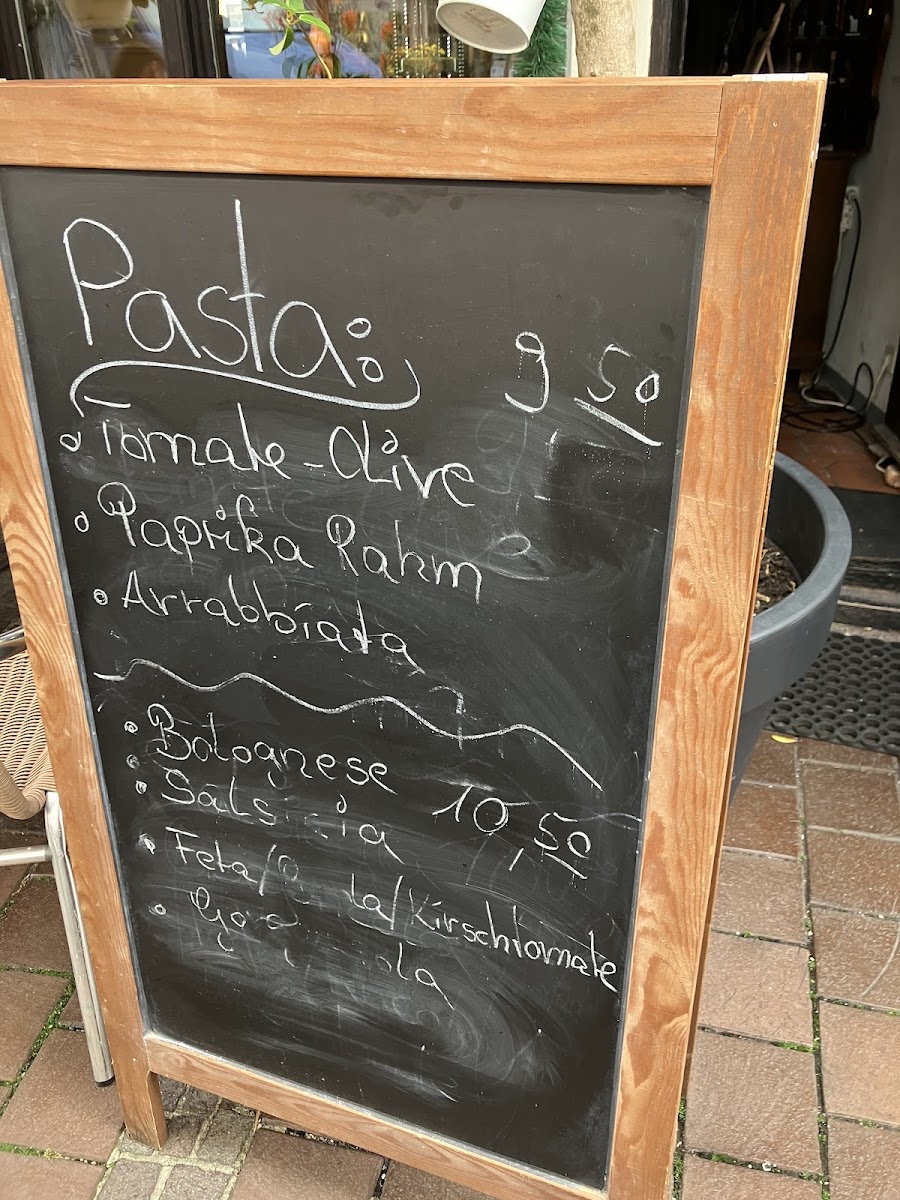 Pasta:
9 50
Tomate-Olive
Paprika Rahm
Arrabbiata
Bolognese
10,50
Salsicia
Feta/ /Kirschtomate